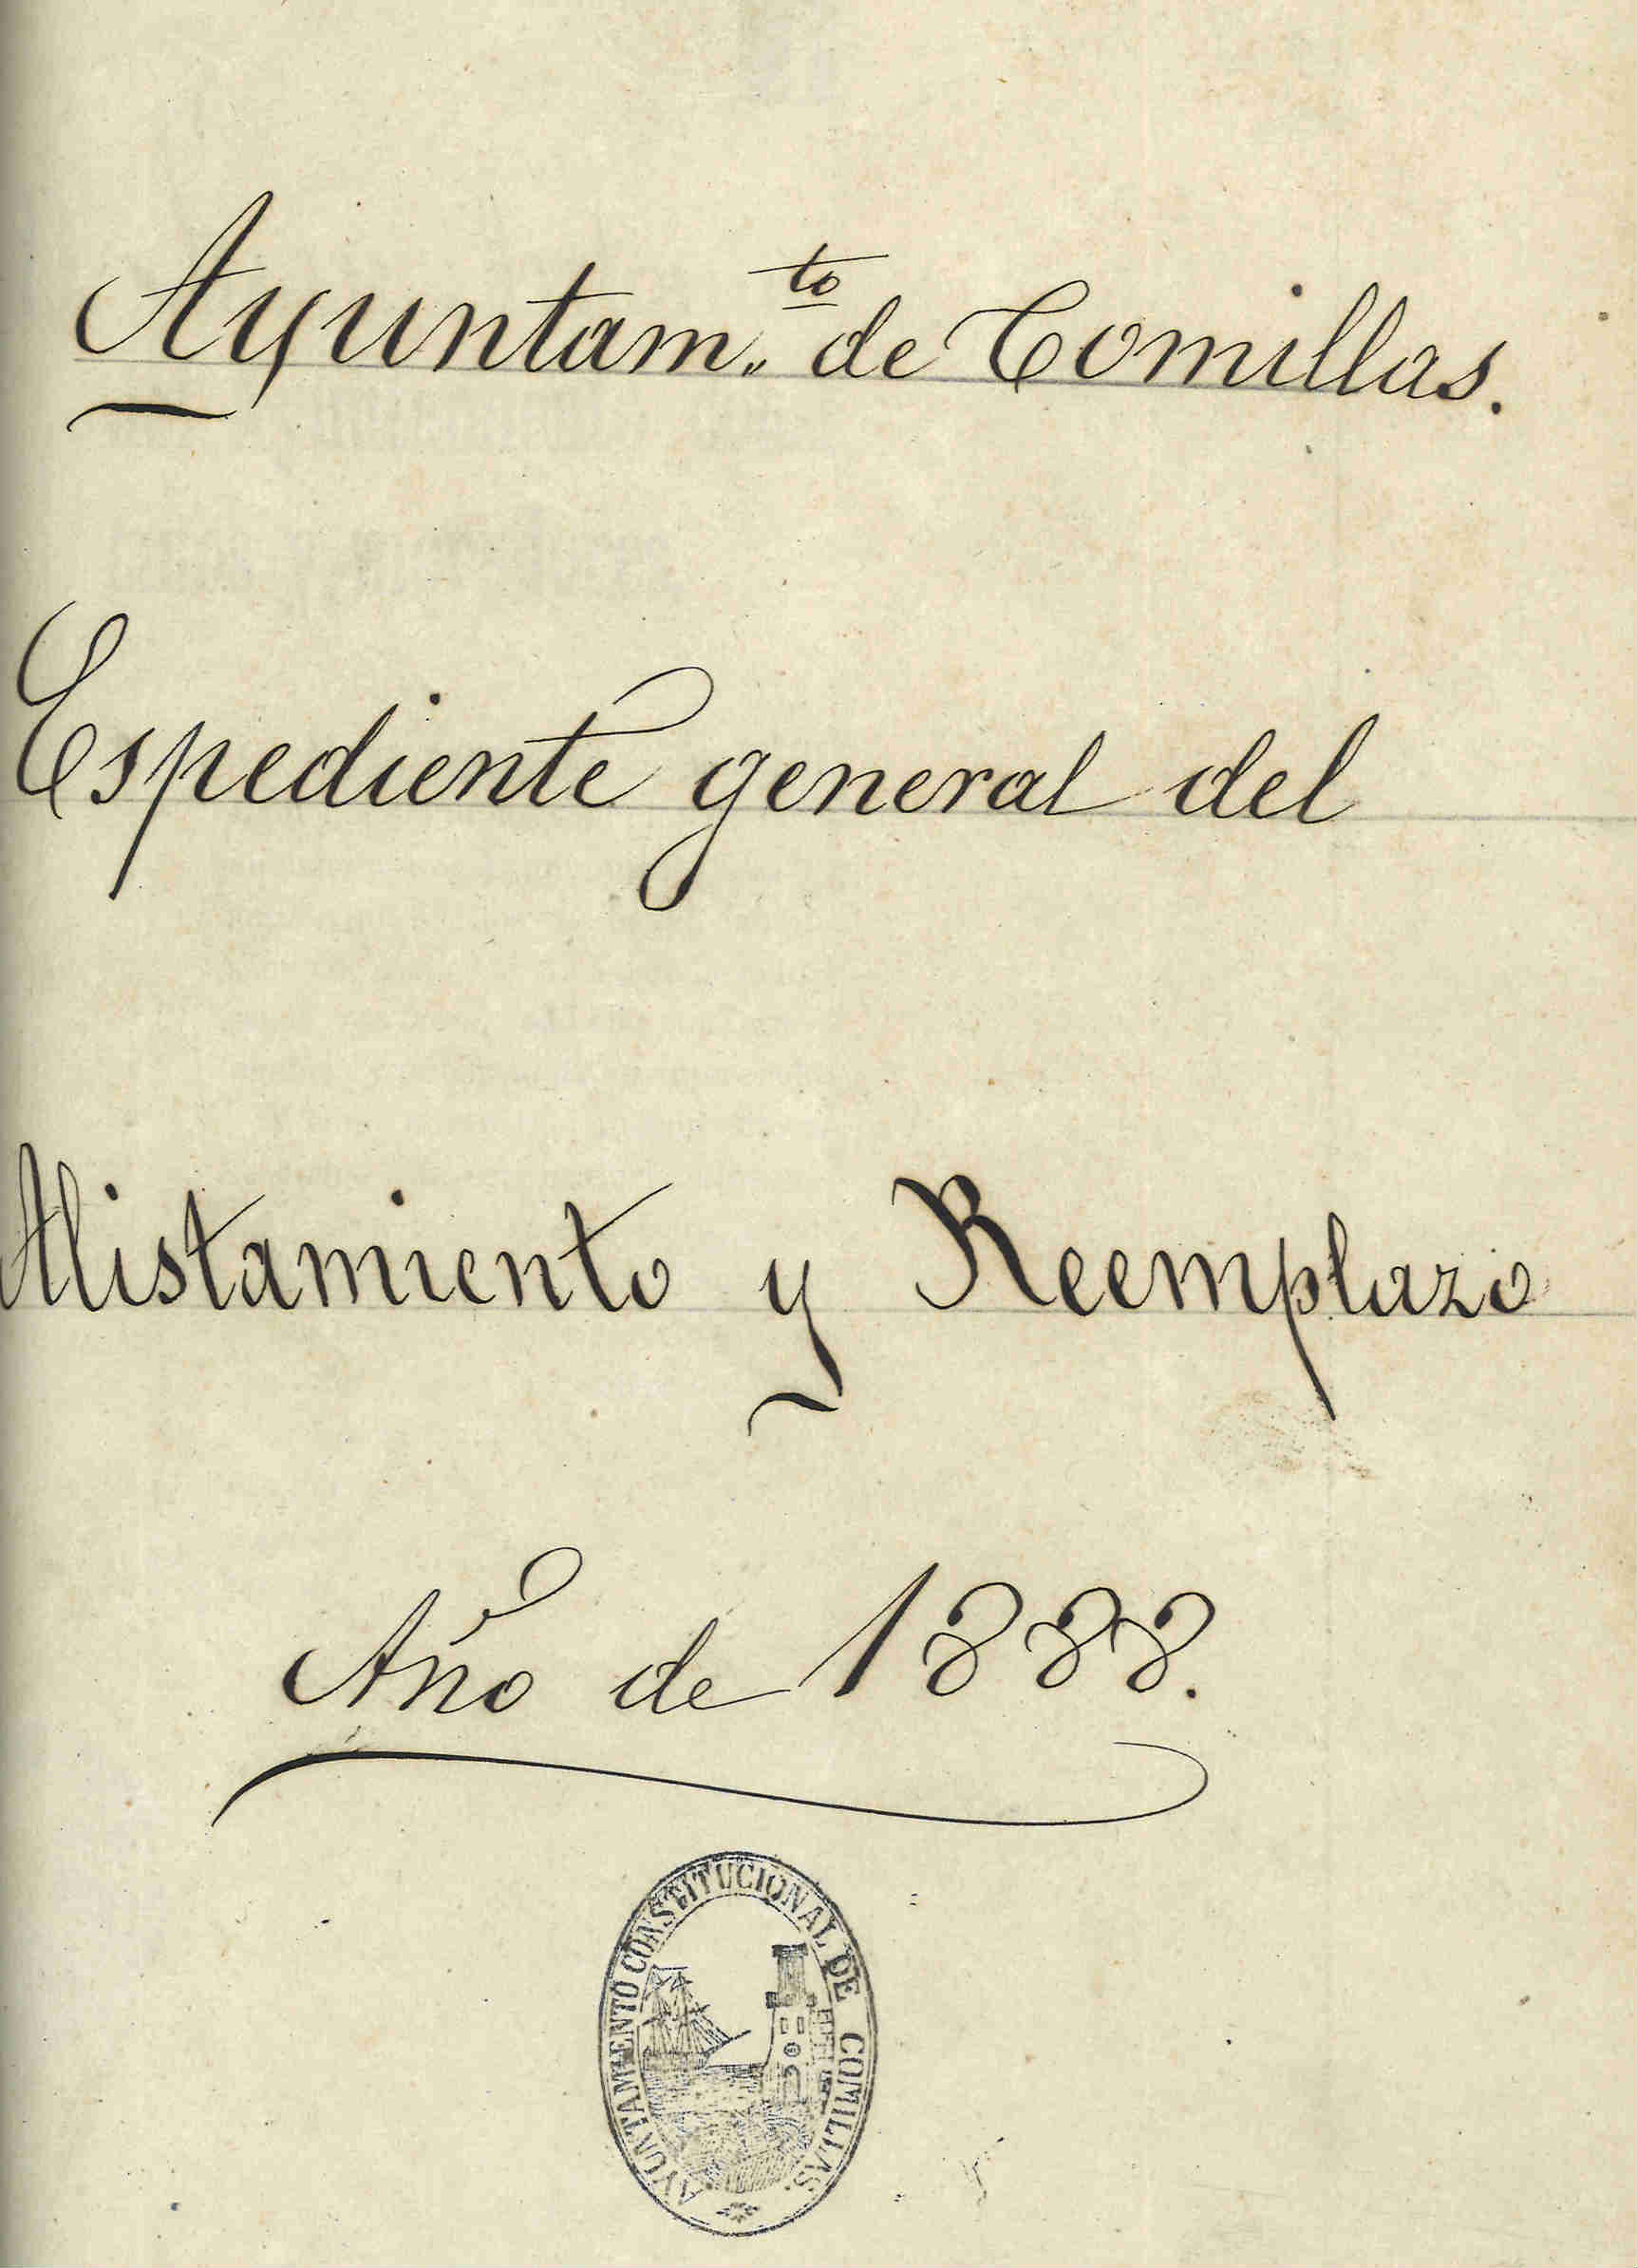 Ayuntam.to de Comillas.
Espediente general del
Alistamiento y Reemplazo
Año de 1888.
AYUNTAMIENTO CONSTITUCIONAL DE COMILLAS.